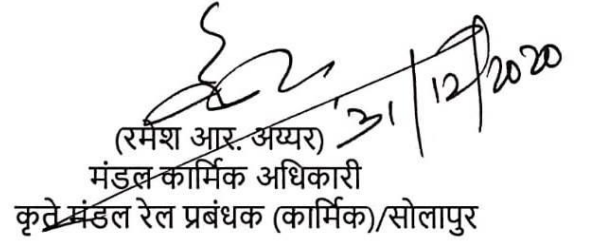 31/12/2020
(रमेश आर. अय्यर)
मंडल कार्मिक अधिकारी
कृते मंडल रेल प्रबंधक (कार्मिक)/सोलापुर